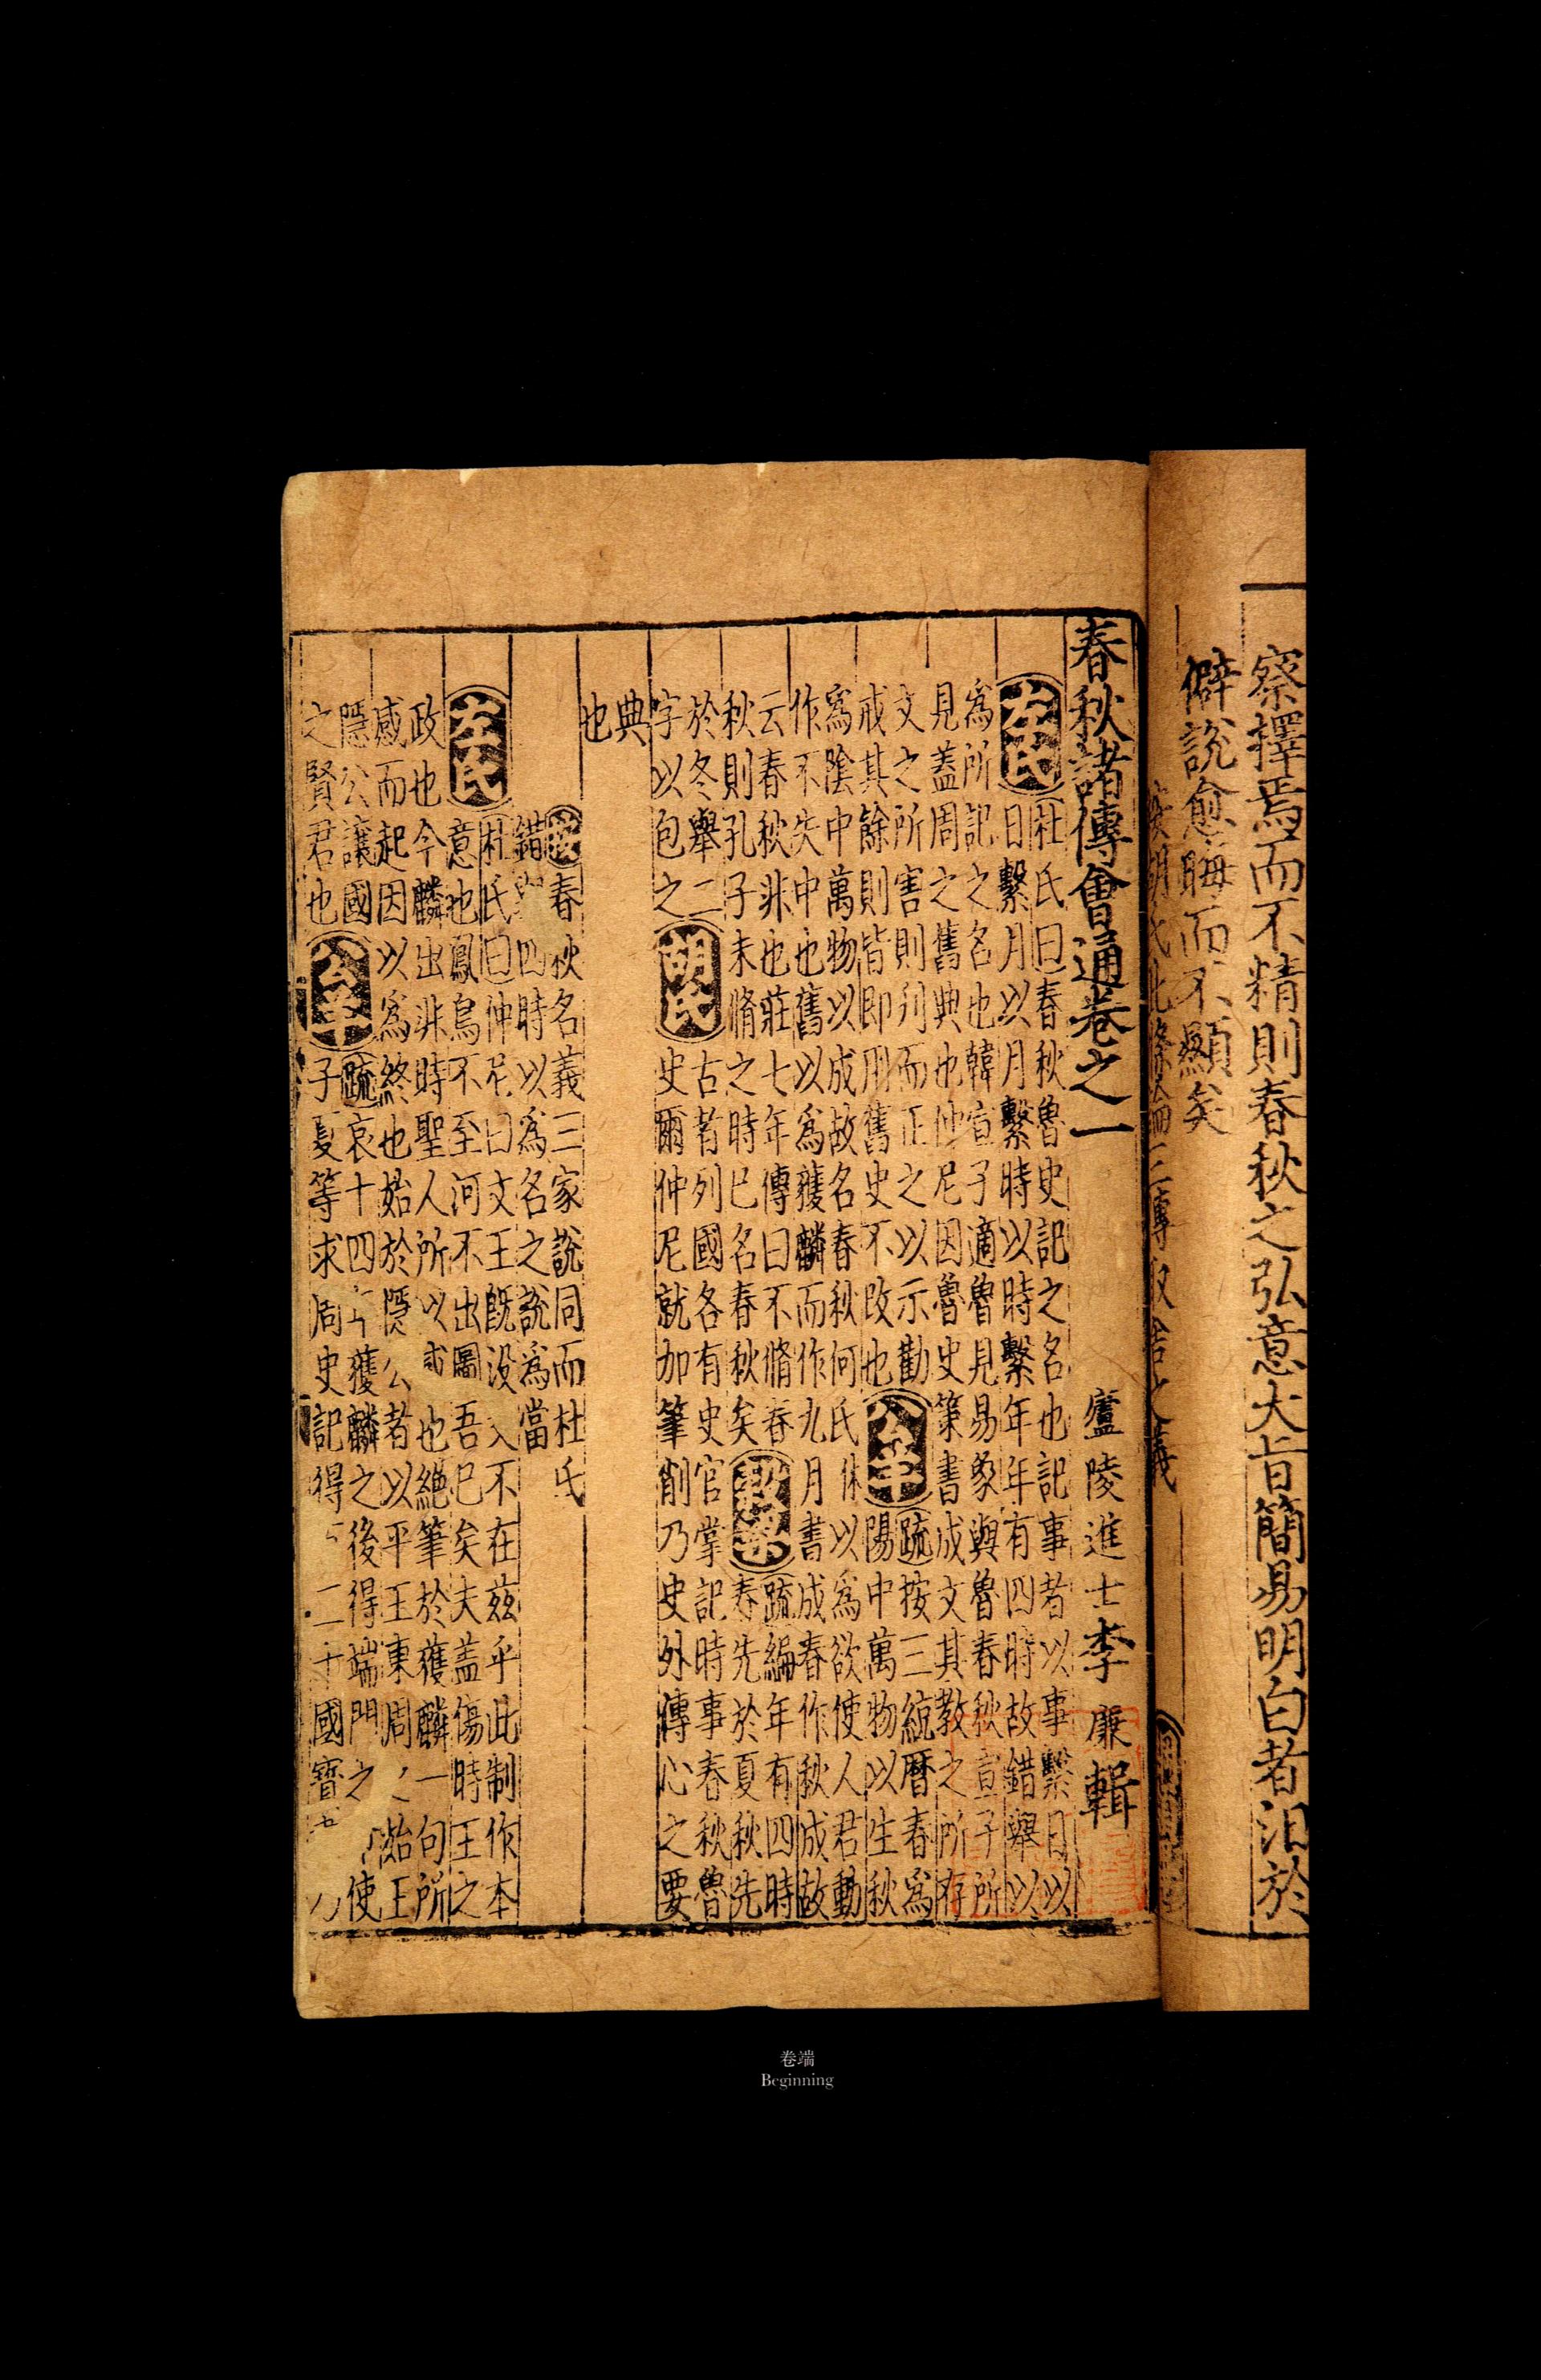 察擇焉而不精則春秋之弘意大旨簡易明白者汨於
僻説愈晦而不顯矣
春秋諸傳會通卷之一
廬陵進士李廉輯
左氏
杜氏曰春秋魯史記之名也記事者以事繫日以
日繫月以月繫時以時繫年年有四時故錯舉以
爲所記之名也韓宣子適魯見易象與魯春秋宣子所
見蓋周之舊典也仲尼因魯史策書成文其教之所存
文之所害則刋而正之以示勸
戒其餘則皆即用舊史不改也
公羊
疏按三統曆春爲
陽中萬物以生秋
爲陰中萬物以成故名春秋何氏休以爲欲使人君動
作不失中也舊以爲獲麟而作九月書成春作秋成故
云春秋非也莊七年傳曰不脩春
秋則孔子未脩之時已名春秋矣
穀梁
疏編年有四時
春先於夏秋先
於冬舉二
字以包之
胡氏
古者列國各有史官掌記時事春秋魯
史爾仲尼就加筆削乃史外傳心之要
典
也
春秋名義三家説同而杜氏
錯 四時以爲名之説爲當
左氏
杜氏曰仲尼曰文王既没文不在兹乎此制作本
意也鳳鳥不至河不出圖吾已矣夫蓋傷時王之
政也今麟出非時聖人所以 也絶筆於獲麟一句所
感而起因以爲終也始於隱公者以平王東周 始王
隱公讓國
之賢君也
公羊
疏哀十四 獲麟之後得端門之 使
子夏等求周史記得 二十國寶
卷端
Beginning